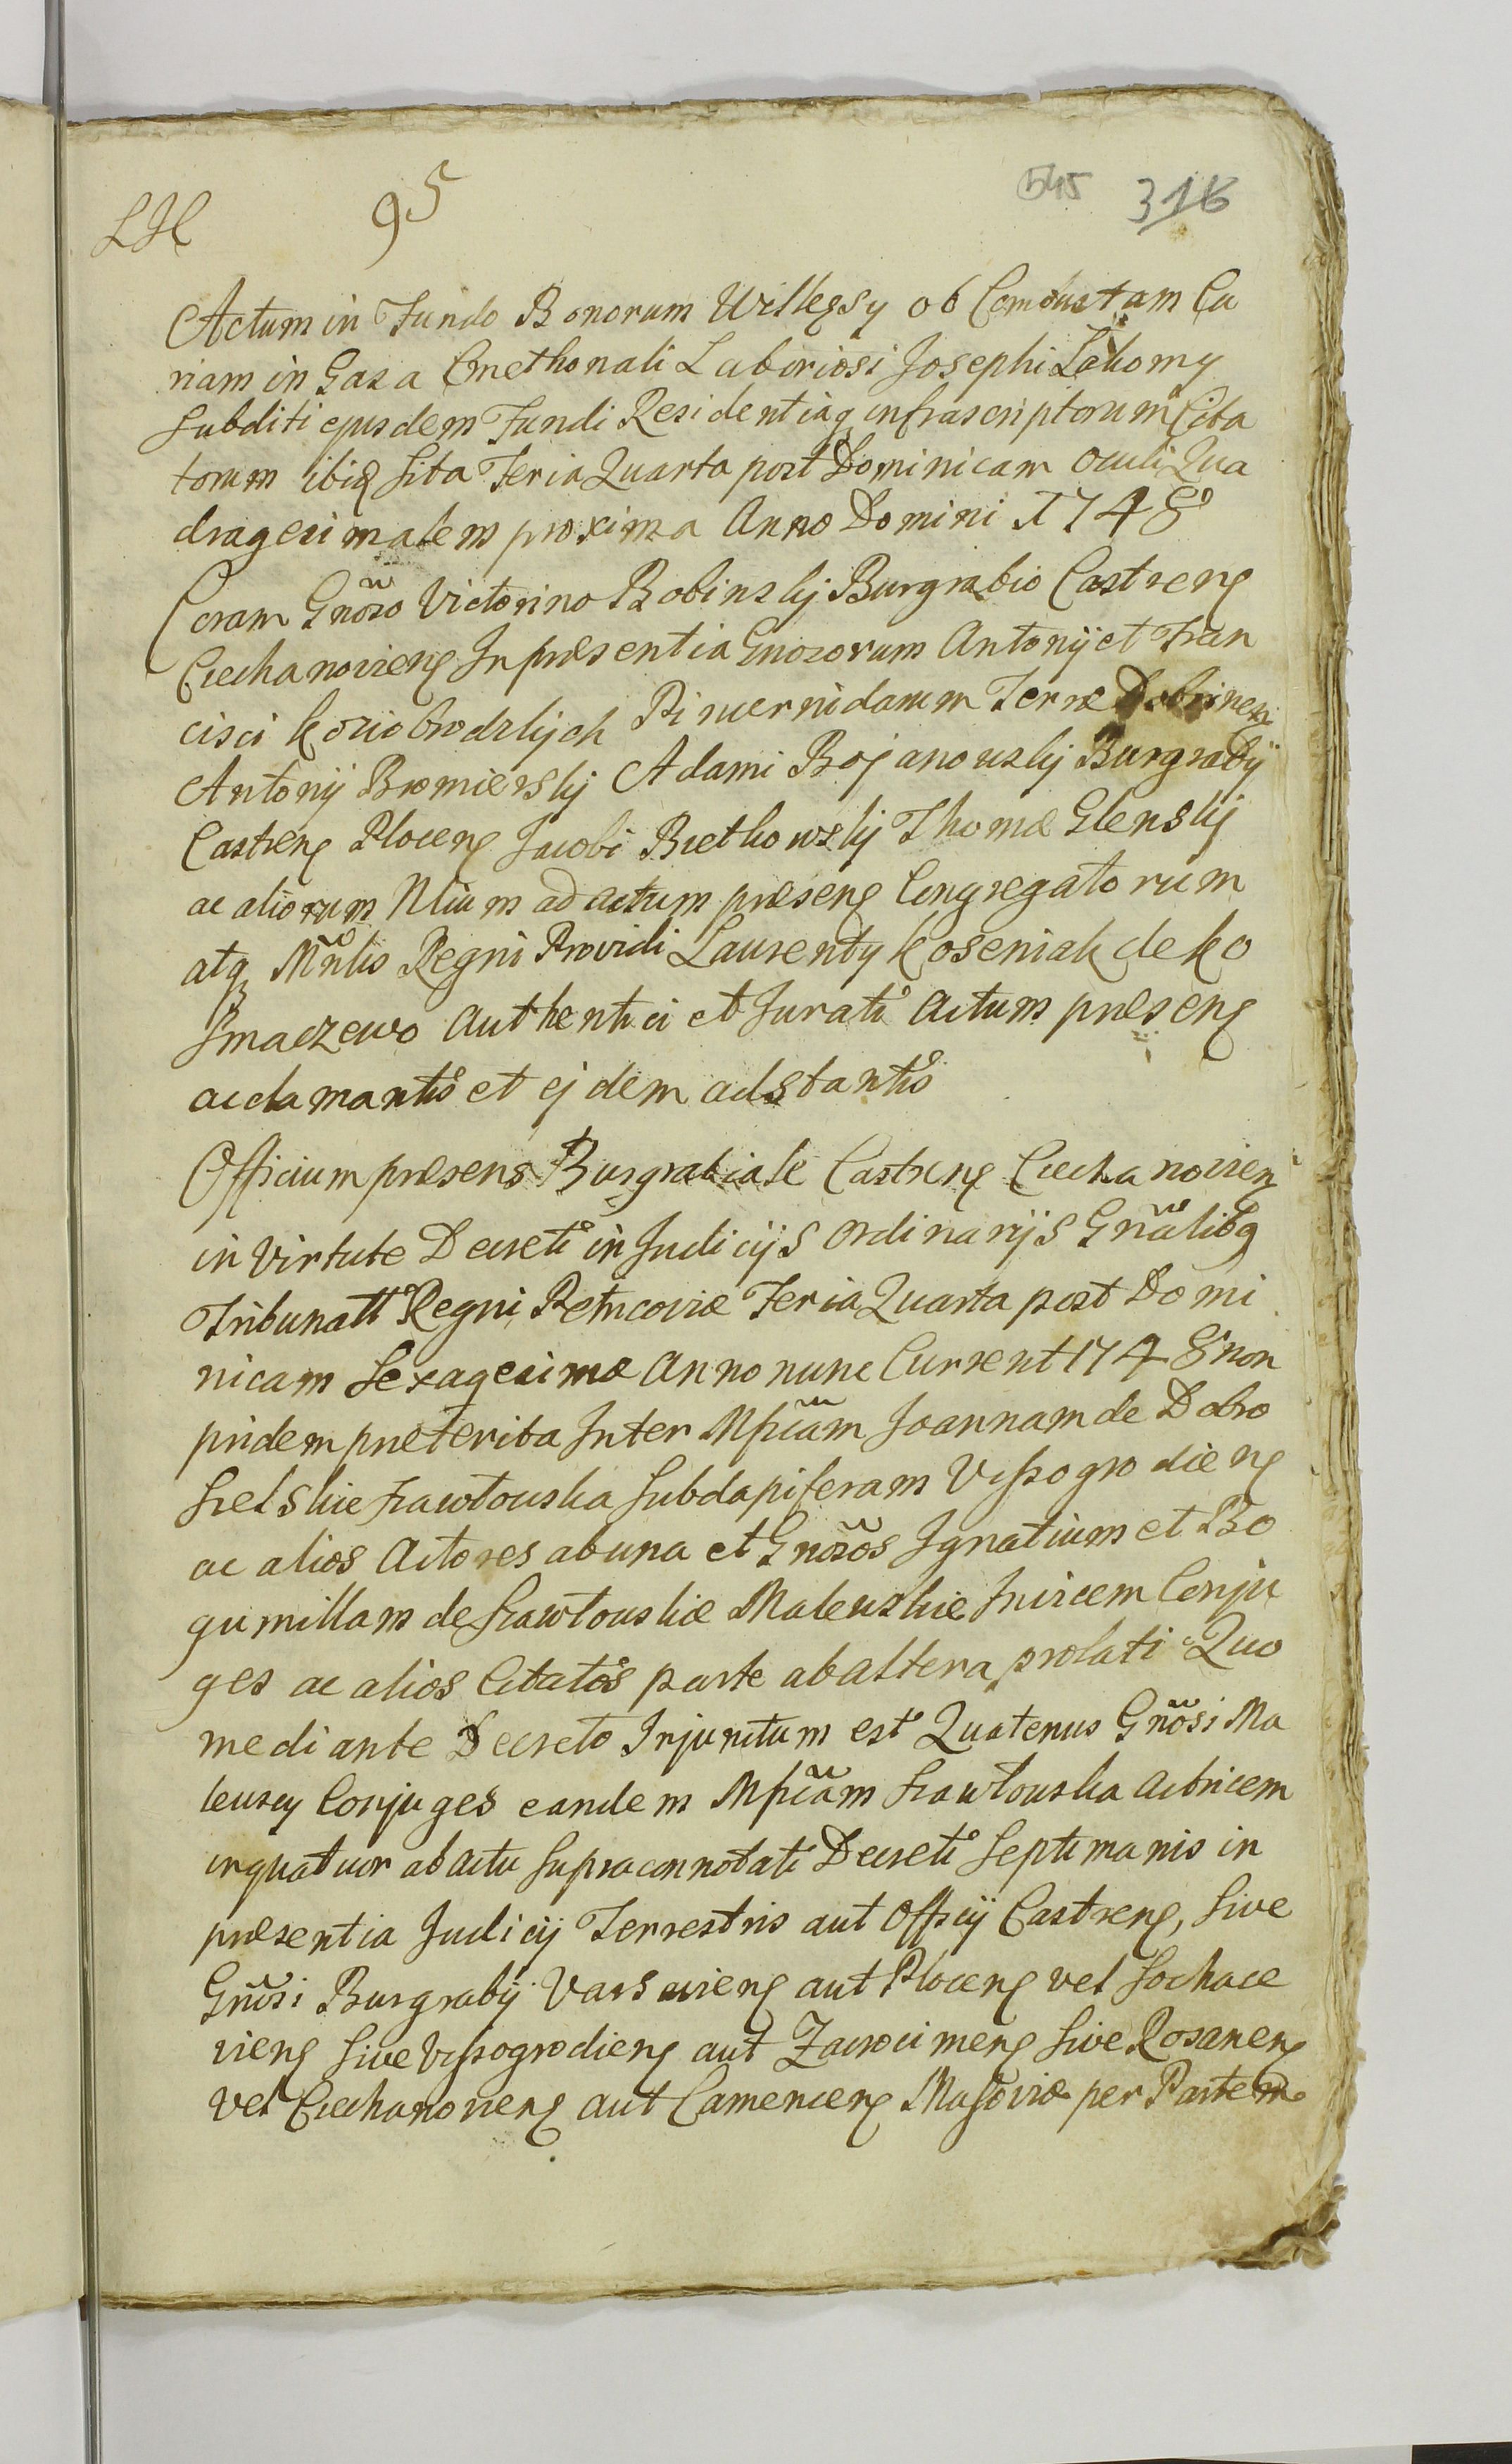 LH 95 545 316
Actum in Fundo Bonorum Willęsy ob Combustam Cu
riam in Gaza Cmethonali Laboriosi Josephi Łakomy
Subditi ejusdem Fundi Residentiaq infrascriptorum Cita
torum ibiq Sita Feria Quarta post Dominicam Oculi Qua
dragesimalem proxima Anno Domini 1748
Coram Gnoso Victorino Bobinskj Burgrabio Castreng
Ciechanovieng In præsentia Gnosorum Antonij et Fran
cisci koziobrodzkjch Pincernidarum Terræ Dobrinen
Antonij Bromierskj Adami Bojanowskj Burgrabij
Castreng Ploceng Jacobi Bętkowskj Thomæ Glenskj
ac aliorum Nlium ad actum præseng Congregatorum
atq Mnlis Regni Providi Laurenty koseniak de ko
smaczewo Authentici et Jurati Actum præseng
acclamantis et ejdem adstantis
Officium præsens Burgrabiale Castreng Ciechanovieng
in Virtute Decreti in Judicijs Ordinarijs Gnalibq
Tribunatt Regni Petricoviæ Feria Quarta post Domi
nicam Sexagesimæ Anno nunc Current 1748 non
pridem præterita Inter Mpicam Joannam de Dobro
sielskie Szawłouska Subdapiferam Vissogrodieng
ac alios Actores ab una et Gnosos Ignatium et Bo
gumillam de Szawłouskie Maleuskie Invicem Conju
ges ac alios Citatos parte ab altera prolati Quo
mediante Decreto Injunctum est Quatenus Gnosi Ma
leuscy Conjuges eandem Mpicam Szawłouska Actricem
in quatuor ab actu Supraconnotati Decreti Septimanis in
præsentia Judicij Terrestris aut Officij Castreng, Sive
Gnosi Burgrabij Varsavieng aut Ploceng vel Sochace
vieng Sive Vissogrodieng aut Zakrocimeng Sive Rosaneng
vel Ciechanovieng aut Camenceng Masoviæ per Partem